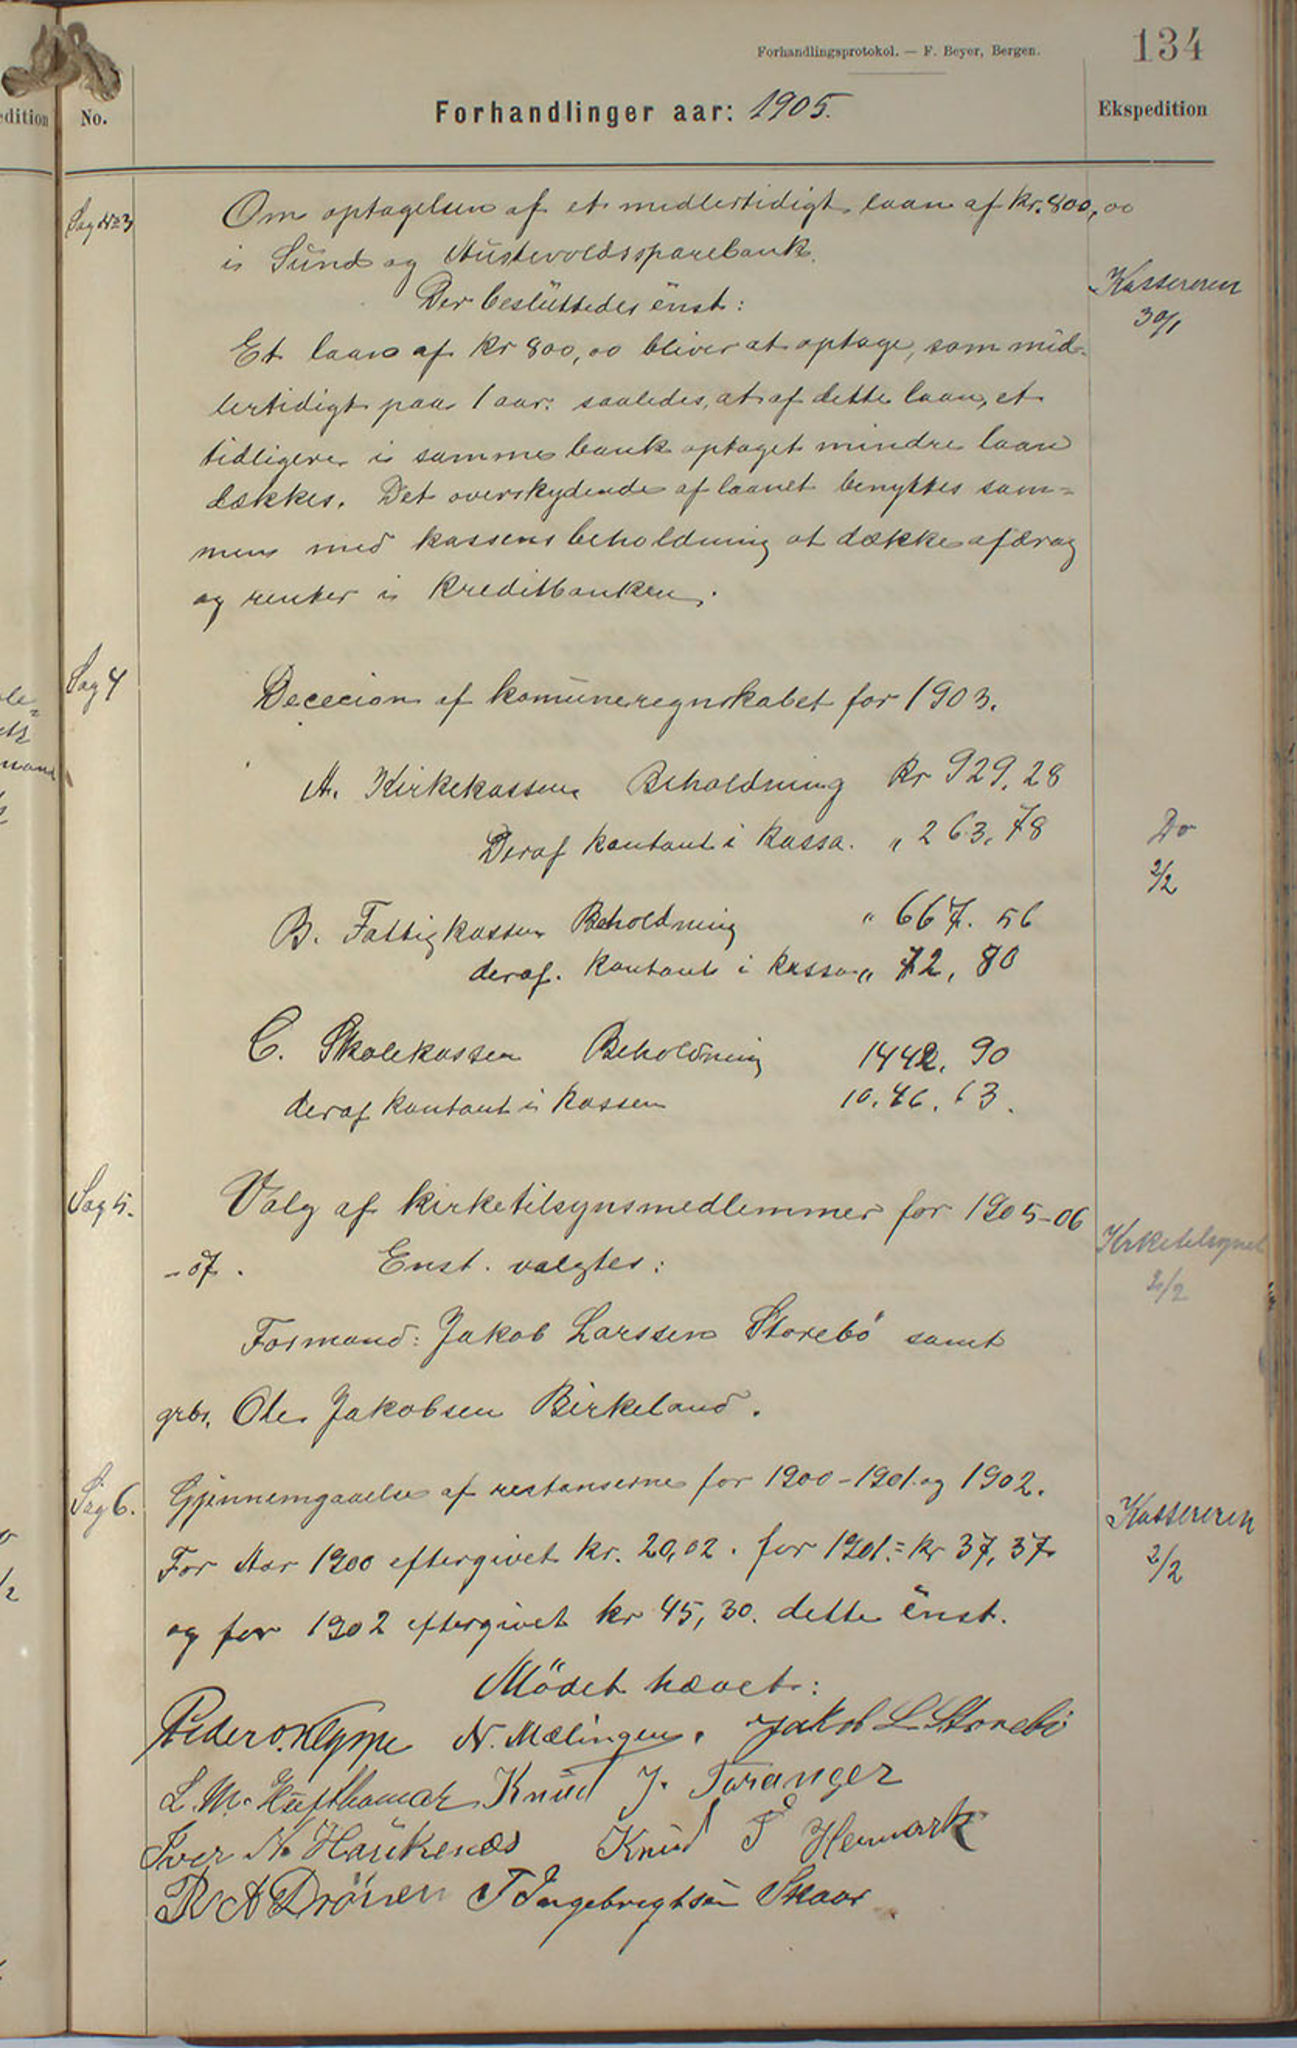 Forhandlingsprotokol. — F. Beyer, Bergen.
134
edition
No.
Forhandlinger aar: 1905.
Ekspedition
Sag No 3
Om optagelsen af et midlertidigt laan af kr. 800,00
i Sund og Austevoldssparebank.
Der besluttedes enst:
Kassereren
30/1
Et laan af kr 800,00 bliver at optage, som mid-
lertidigt paa 1 aar. saaledes, at af dette laan, et
tidligere i samme bank optaget mindre laan
dækkes. Det overskydende af laanet benyttes sam=
men med kassens beholdning at dække afdrag
og renter i Kreditbanken.
Sag 4
Dececion af komuneregnskabet for 1903.
A. Kirkekassen Beholdning kr 929,28
Deraf kontant i kassa. „ 263,78
Do
2/2
B. Fattigkassen Beholdning „ 667.56
deraf. kontant i kassa „ 72,80
C. Skolekassen Beholdning 1442.90
deraf kontant i kassen 10.46.63.
Sag 5.
Valg af kirketilsynsmedlemmer for 1905-06
-07. Enst. valgtes:
Kirketilsynet
2/2
Formand: Jakob Larssen Storebö samt
grbr. Ole Jakobsen Birkeland.
Sag 6.
Gjennemgaaelse af restanserne for 1900-1901 og 1902.
Kassereren
2/2
For Aar 1900 eftergivet kr. 20,02. for 1901.= kr 37,37
og for 1902 eftergivet kr 45,30. dette enst.
Mödet hævet:
Peder O. Kleppe N. Mælingen. Jakob L. Storebö
L. M. Hufthamar Knud J. Toranger
Iver N. Haukenæs Knud T Henmark
R A Drönen T Ingebrigtsen Skaar